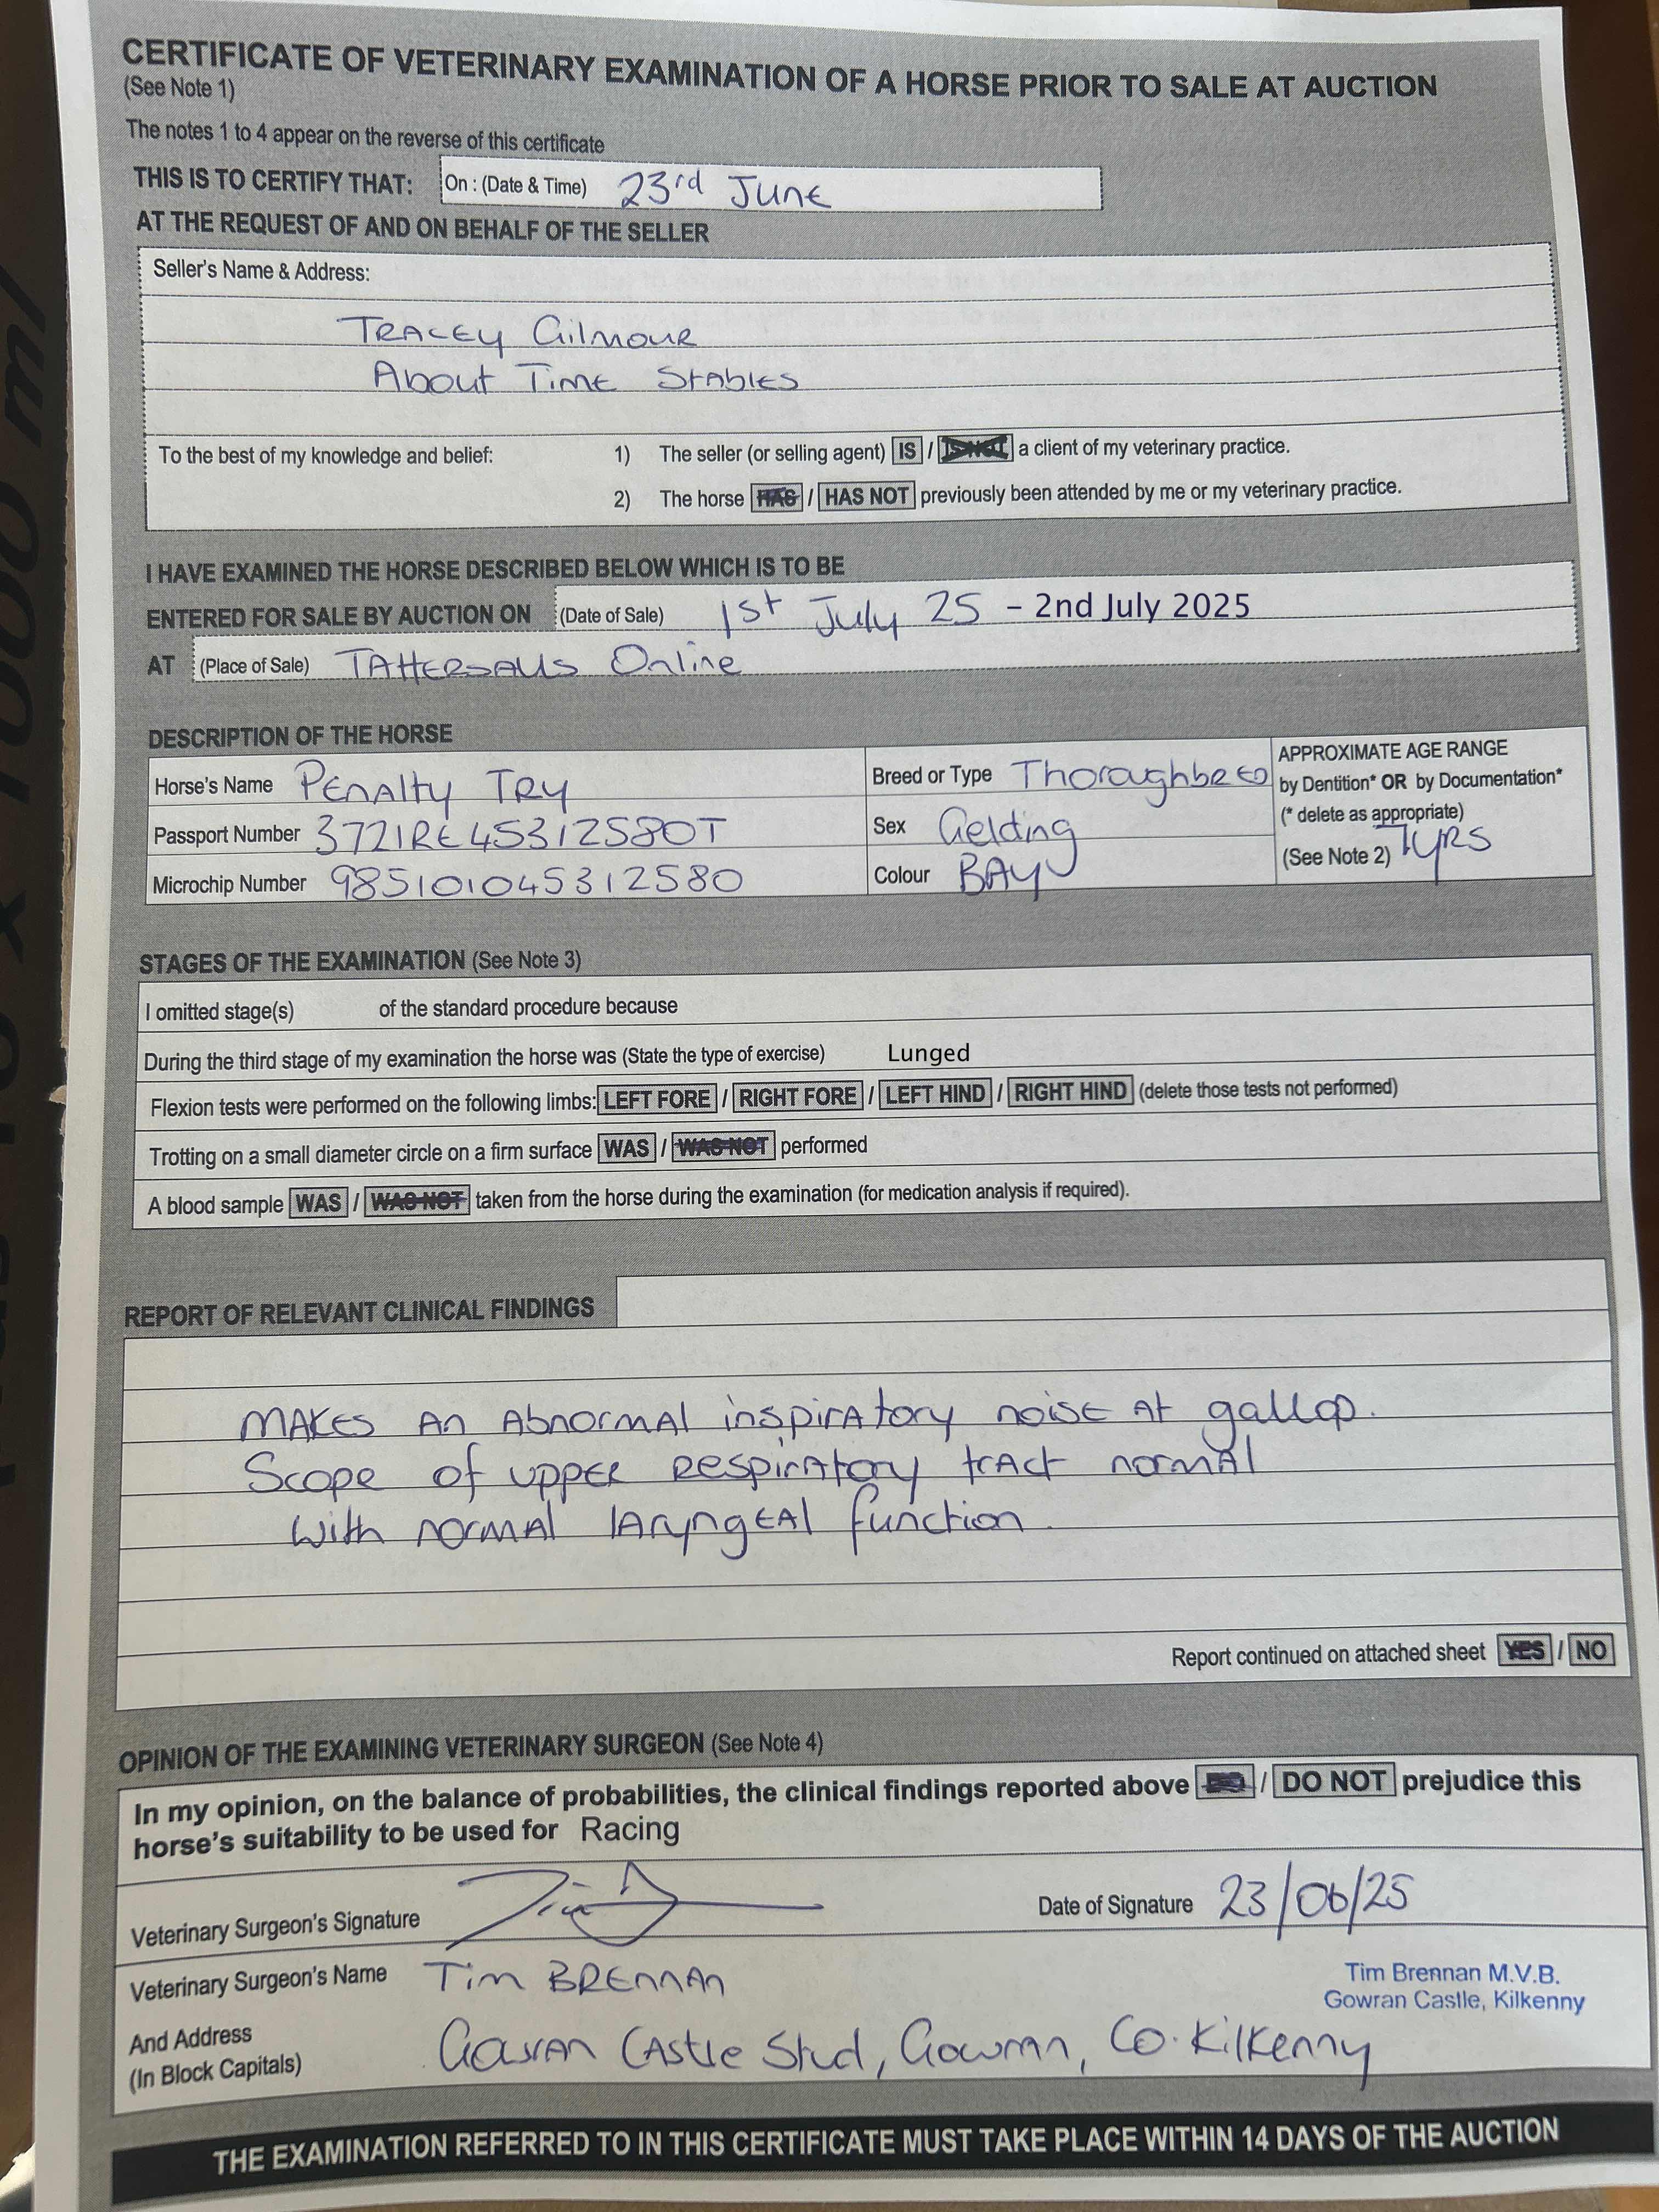 CERTIFICATE OF VETERINARY EXAMINATION OF A HORSE PRIOR TO SALE AT AUCTION
(See Note 1)
The notes 1 to 4 appear on the reverse of this certificate
THIS IS TO CERTIFY THAT: On : (Date & Time) 23rd June
AT THE REQUEST OF AND ON BEHALF OF THE SELLER
Seller's Name & Address:
TRACEY Gilmour
About Time Stables
To the best of my knowledge and belief: 1) The seller (or selling agent) IS / IS NOT a client of my veterinary practice.
2) The horse HAS / HAS NOT previously been attended by me or my veterinary practice.
I HAVE EXAMINED THE HORSE DESCRIBED BELOW WHICH IS TO BE
ENTERED FOR SALE BY AUCTION ON (Date of Sale) 1st July 25 - 2nd July 2025
AT (Place of Sale) TATTERSALLS Online
DESCRIPTION OF THE HORSE
Horse's Name Penalty TRY Breed or Type Thoroughbred
Passport Number 372IRE45312580T Sex Gelding
Microchip Number 985101045312580 Colour BAY
APPROXIMATE AGE RANGE
by Dentition* OR by Documentation*
(* delete as appropriate)
(See Note 2) 7yrs
STAGES OF THE EXAMINATION (See Note 3)
I omitted stage(s) of the standard procedure because
During the third stage of my examination the horse was (State the type of exercise) Lunged
Flexion tests were performed on the following limbs: LEFT FORE / RIGHT FORE / LEFT HIND / RIGHT HIND (delete those tests not performed)
Trotting on a small diameter circle on a firm surface WAS / WAS NOT performed
A blood sample WAS / WAS NOT taken from the horse during the examination (for medication analysis if required).
REPORT OF RELEVANT CLINICAL FINDINGS
MAKES AN Abnormal inspiratory noise at gallop.
Scope of upper respiratory tract normal
with normal laryngeal function.
Report continued on attached sheet YES / NO
OPINION OF THE EXAMINING VETERINARY SURGEON (See Note 4)
In my opinion, on the balance of probabilities, the clinical findings reported above / DO NOT prejudice this
horse's suitability to be used for Racing
Veterinary Surgeon's Signature Date of Signature 23/06/25
Veterinary Surgeon's Name Tim BRENNAN
Tim Brennan M.V.B.
Gowran Castle, Kilkenny
And Address
(In Block Capitals) Gowran Castle Stud, Gowran, Co. Kilkenny
THE EXAMINATION REFERRED TO IN THIS CERTIFICATE MUST TAKE PLACE WITHIN 14 DAYS OF THE AUCTION